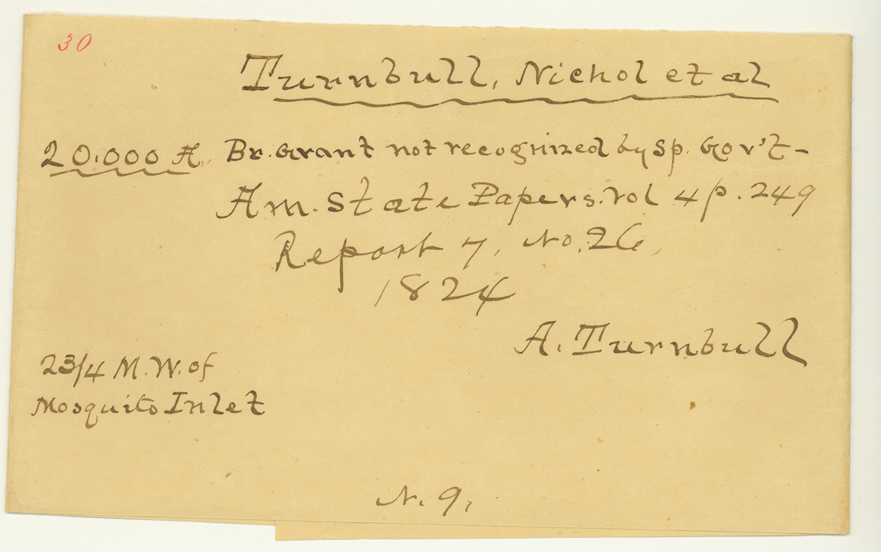 30
Turnbull, Nichol et al
20.000 A. Br. Grant not recognized by Sp. Gov't -
Am. State Papers. Vol 4 p. 249
Report 7, No. 26,
1824
A. Turnbull
2 3/4 M. W. of
Mosquito Inlet
N. 9,